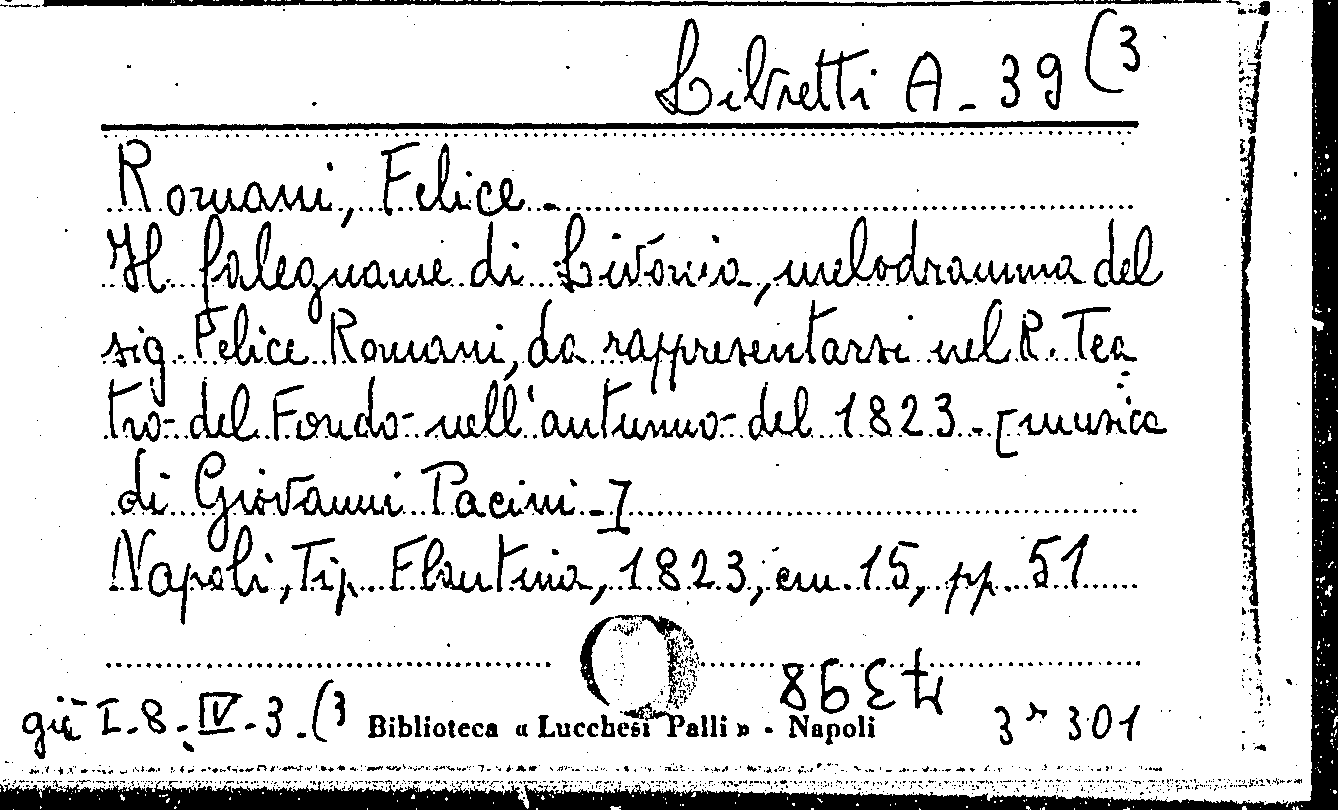 Libretti A - 39 (3
Romani, Felice -
Il falegname di Livonia, melodramma del
sig. Felice Romani, da rappresentarsi nel R. Tea
tro del Fondo nell'autunno del 1823 - [musica
di Giovanni Pacini -]
Napoli, Tip. Flautina, 1823, cm. 15, pp. 51
4368
già I-8-IV-3-(3 Biblioteca « Lucchesi Palli » - Napoli 3ª 301